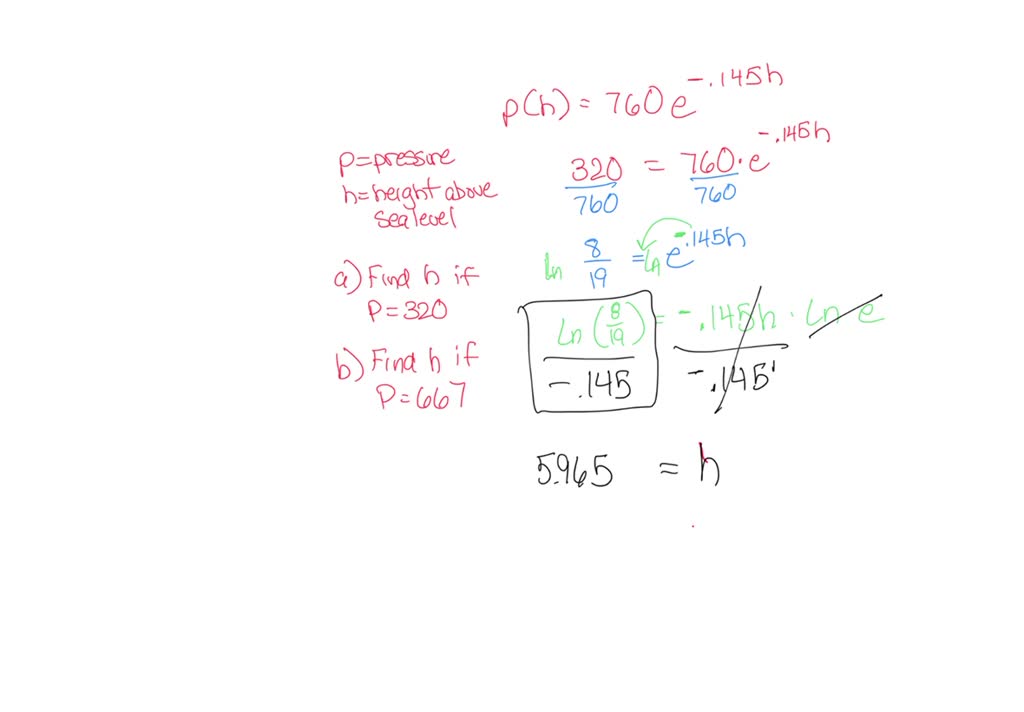 p(h) = 760e^-.145h
P=pressure
h=height above
sea level
a) Find h if
P=320
b) Find h if
P=667
320/760 = 760·e^-.145h/760
ln 8/19 = ln e^-.145h
ln(8/19)/-.145 = -.145h · ln e/-.145
5.965 = h